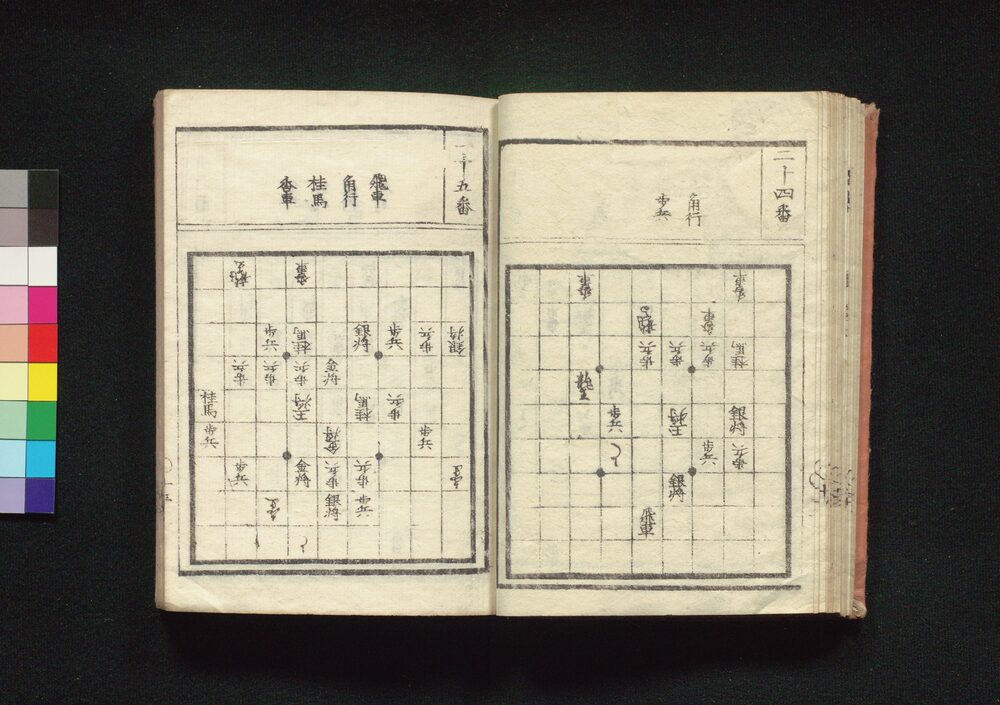 二十四番
角行
歩兵
香車
桂馬
銀将
歩兵
香車
歩兵
歩兵
歩兵
王将
銀将
歩兵
飛車
歩兵
と
香車
龍王
二十五番
飛車
角行
桂馬
香車
銀将
歩兵
歩兵
歩兵
歩兵
銀将
桂馬
歩兵
歩兵
金将
金将
歩兵
銀将
香車
桂馬
歩兵
王将
金将
と
歩兵
歩兵
歩兵
歩兵
桂馬
歩兵